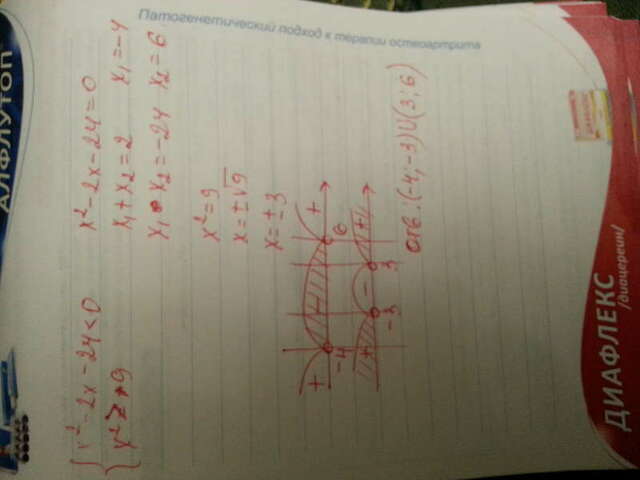 Патогенетический подход к терапии остеоартрита
АЛФЛУТОП
x² - 2x - 24 < 0
x² > 9
x² - 2x - 24 = 0
x₁ + x₂ = 2 x₁ = -4
x₁ • x₂ = -24 x₂ = 6
x² = 9
x = ±√9
x = ±3
+ - +
-4 6
+ - +
-3 3
Отв.: (-4; -3) U (3; 6)
ДИАФЛЕКС
/диацереин/